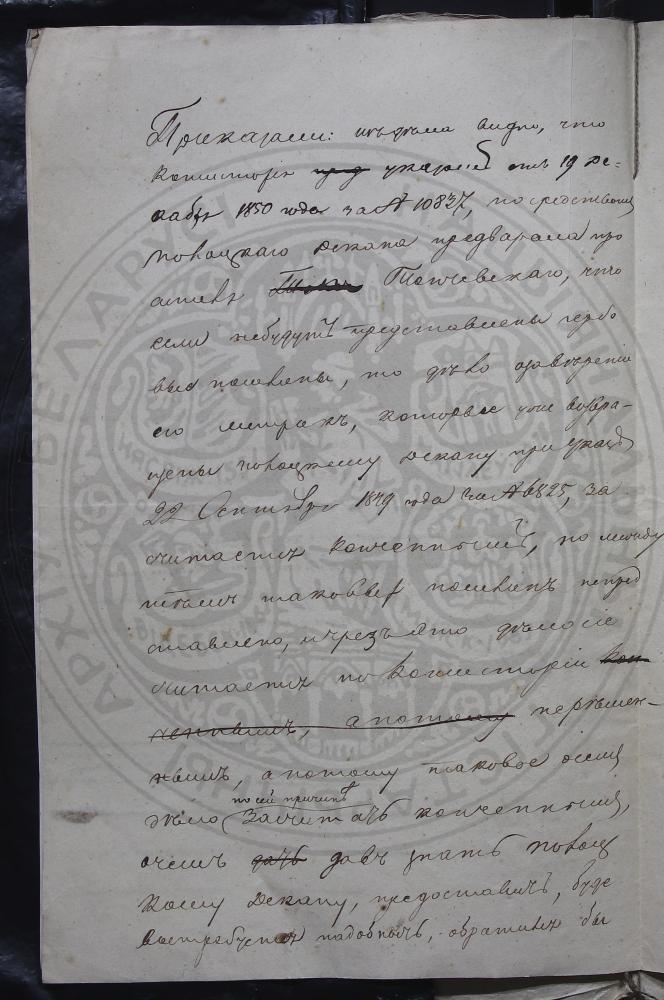 Приказали: изъ дѣла видно, что
Консисторія указомъ отъ 19 де-
кабря 1850 года за № 10837, посредствомъ
Полоцкаго декана предваряла про
что
если небудутъ представлены гербо
выя пошлины, то дѣло о
его метрикъ, которые уже возвра-
щены Полоцкому декану при указѣ
22 Сентября 1849 года за № 6825, за
считается конченнымъ, но между
тѣмъ таковыя пошлины непред
ставлено, и чрезъ это дѣло сіе
считается по Консисторіи кон-
ченнымъ, а потому нерѣшен-
нымъ, а потому таковое
по сей причинѣ
дѣло зачитать конченнымъ,
о чемъ дать давъ знать Полоц
кому декану, предоставить, буде
востребуется надобность, обратился бы